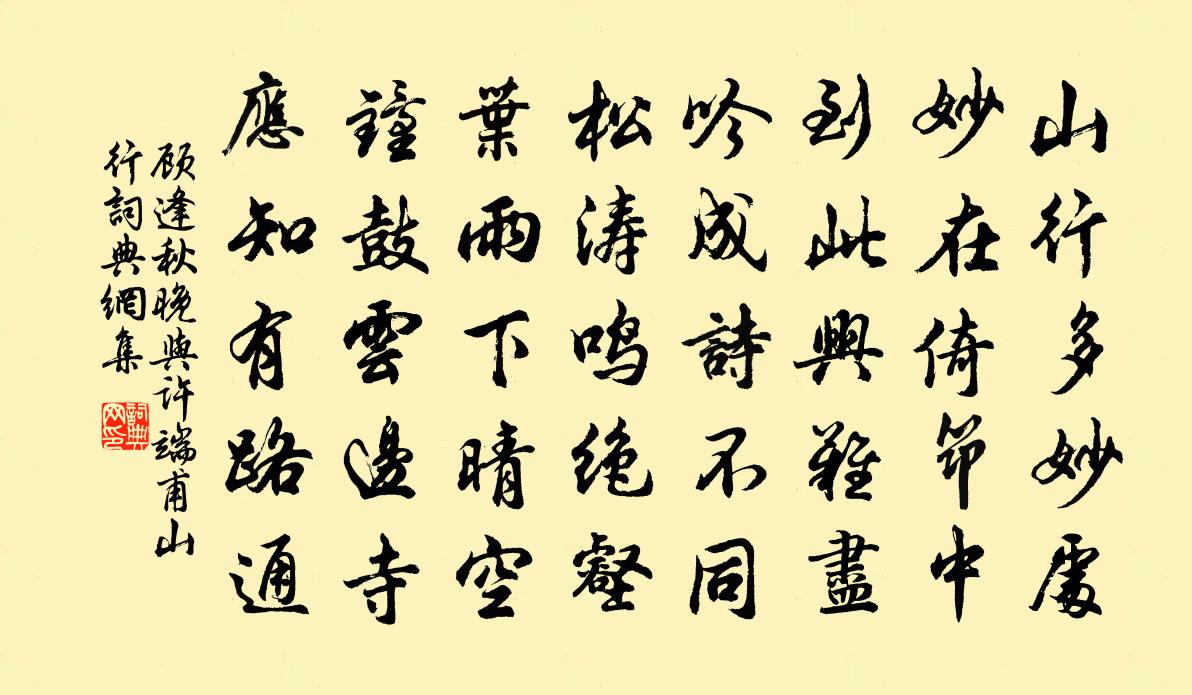 山行多妙處
妙在倚笻中
到此興難盡
吟成詩不同
松涛鳴絶壑
葉雨下晴空
鐘鼓雲邊寺
應知有路通
顾逢秋晚與许端甫山
行詞典網集
詞典
网印